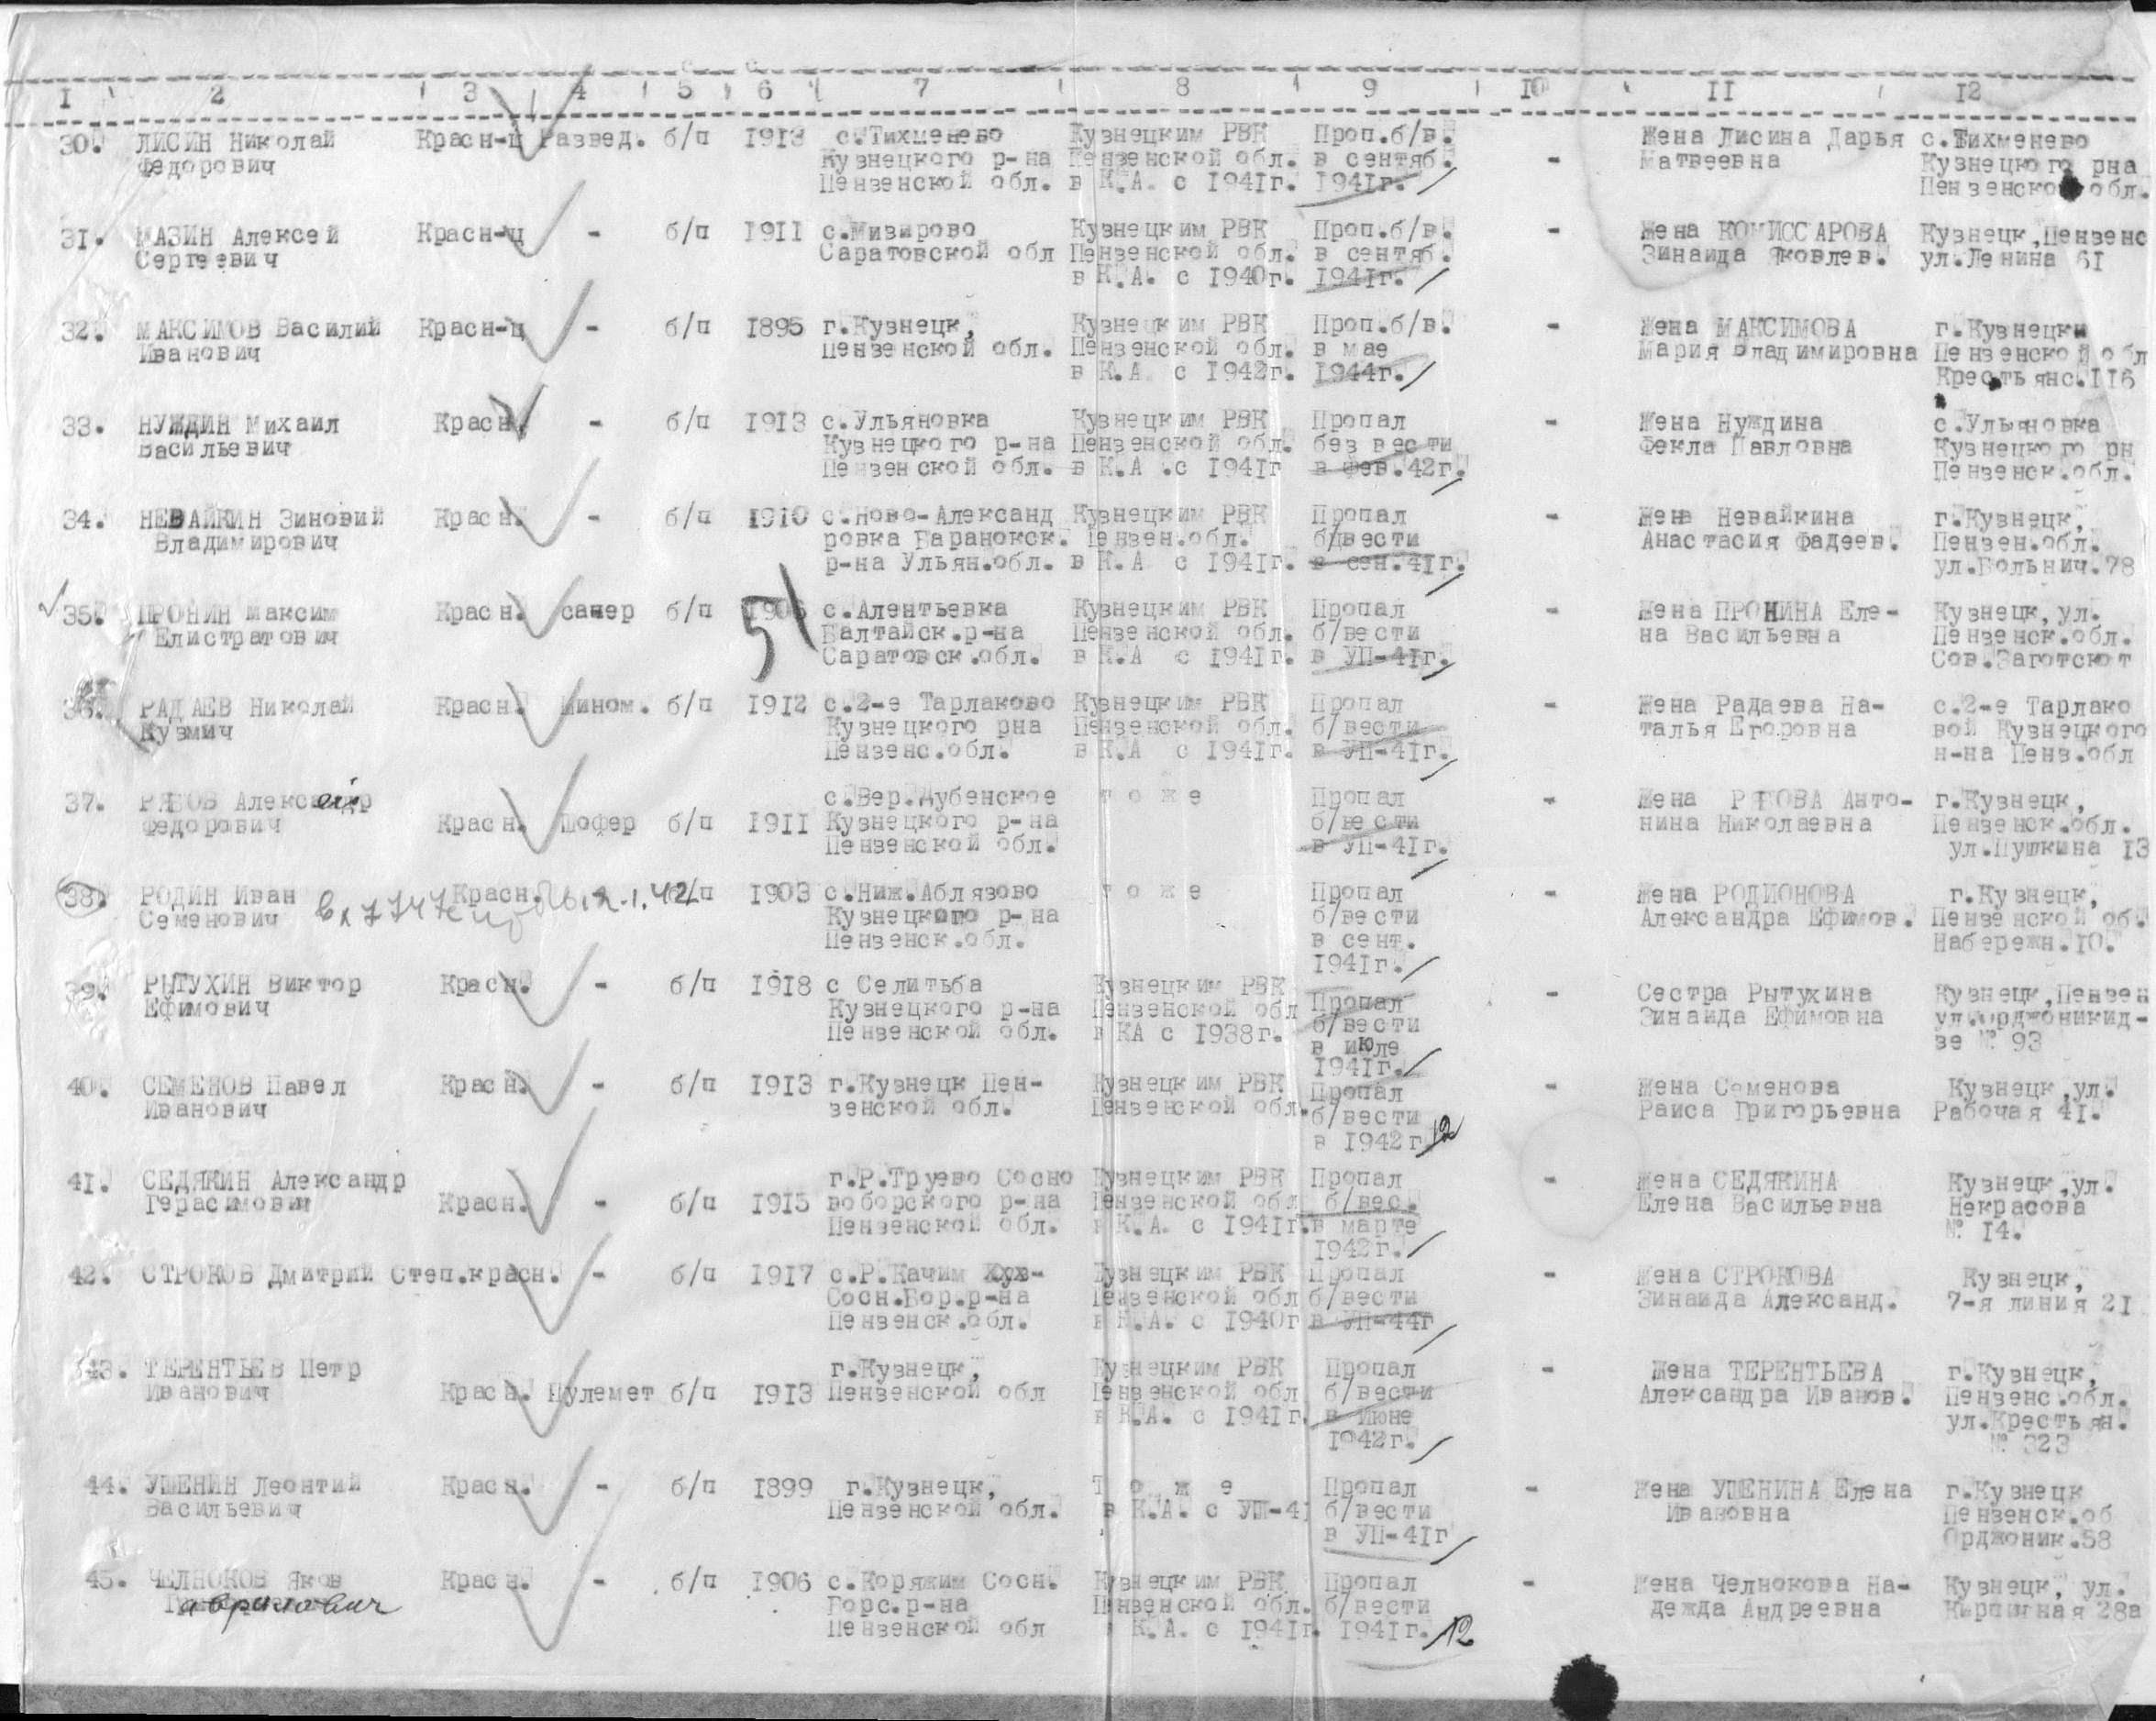 1 2 3 4 5 6 7 8 9 10 11 12
30. ЛИСИН Николай Красн-ц Развед. б/п 1913 с.Тихменево Кузнецким РВК Проп.б/в. Жена Лисина Дарья с.Тихменево
Федорович Кузнецкого р-на Пензенской обл. в сентяб. - Матвеевна Кузнецкого рна
Пензенской обл. в К.А. с 1941г. 1941г. Пензенской обл.
31. МАЗИН Алексей Красн-ц - б/п 1911 с.Мизирово Кузнецким РВК Проп.б/в. - Жена КОМИССАРОВА Кузнецк,Пензенс
Сергеевич Саратовской обл Пензенской обл. в сентяб. Зинаида Яковлев. ул.Ленина 61
в К.А. с 1940г. 1941г.
32. МАКСИМОВ Василий Красн-ц - б/п 1895 г.Кузнецк, Кузнецким РВК Проп.б/в. - Жена МАКСИМОВА г.Кузнецк
Иванович Пензенской обл. Пензенской обл. в мае Мария Владимировна Пензенской обл
в К.А. с 1942г. 1944г. Крестьянс.116
33. НУЖДИН Михаил Красн. - б/п 1913 с.Ульяновка Кузнецким РВК Пропал - Жена Нуждина с.Ульяновка
Васильевич Кузнецкого р-на Пензенской обл. без вести Фекла Павловна Кузнецкого рн
Пензенской обл. в К.А .с 1941г в фев.42г. Пензенск.обл.
34. НЕВАЙКИН Зиновий Красн. - б/п 1910 с.Ново-Александ Кузнецким РВК Пропал - Жена Невайкина г.Кузнецк,
Владимирович ровка Баранокск. Пензен.обл. б/вести Анастасия Фадеев. Пензен.обл.
р-на Ульян.обл. в К.А с 1941г. в сен.41г. ул.Больнич.78
35. ПРОНИН Максим Красн. сапер б/п 1906 51 с.Алентьевка Кузнецким РВК Пропал - Жена ПРОНИНА Еле- Кузнецк,ул.
Елистратович Балтайск.р-на Пензенской обл. б/вести на Васильевна Пензенск.обл.
Саратовск.обл. в К.А с 1941г. в УП-41г. Сов.Заготскот
36. РАДАЕВ Николай Красн. Мином. б/п 1912 с.2-е Тарлаково Кузнецким РВК Пропал - Жена Радаева На- с.2-е Тарлако
Кузмич Кузнецкого рна Пензенской обл. б/вести талья Егоровна вой Кузнецкого
Пензенс.обл. в К.А с 1941г. в УП-41г. н-на Пенз.обл
37. РЯБОВ Алексей с.Вер.Дубенское т о ж е Пропал - Жена РЯБОВА Анто- г.Кузнецк,
Федорович Красн. Шофер б/п 1911 Кузнецкого р-на б/вести нина Николаевна Пензенск.обл.
Пензенской обл. в УП-41г. ул.Пушкина 13
38. РОДИН Иван Красн. б/п 1903 с.Ниж.Аблязово т о ж е Пропал - Жена РОДИОНОВА г.Кузнецк,
Семенович Кузнецкого р-на б/вести Александра Ефимов. Пензенской об.
Пензенск.обл. в сент. Набережн.10.
1941г.
39. РЫТУХИН Виктор Красн. - б/п 1918 с Селитьба Кузнецким РВК Пропал - Сестра Рытухина Кузнецк,Пензен
Ефимович Кузнецкого р-на Пензенской обл б/вести Зинаида Ефимовна ул.Орджоникид-
Пензенской обл. в КА с 1938г. в июле зе № 93
1941г.
40. СЕМЕНОВ Павел Красн. - б/п 1913 г.Кузнецк Пен- Кузнецким РВК Пропал - Жена Семенова Кузнецк,ул.
Иванович зенской обл. Пензенской обл. б/вести Раиса Григорьевна Рабочая 41.
в 1942г 12
41. СЕДЯКИН Александр г.Р.Труево Сосно Кузнецким РВК Пропал - Жена СЕДЯКИНА Кузнецк,ул.
Герасимович Красн. - б/п 1915 воборского р-на Пензенской обл б/вес. Елена Васильевна Некрасова
Пензенской обл. в К.А. с 1941г. в марте № 14.
1942г.
42. СТРОКОВ Дмитрий Степ.красн. - б/п 1917 с.Р.Качим Кузнецким РВК Пропал - Жена СТРОКОВА Кузнецк,
Сосн.Бор.р-на Пензенской обл б/вести Зинаида Александ. 7-я линия 21
Пензенск.обл. в К.А. с 1940г в УП-44г
43. ТЕРЕНТЬЕВ Петр г.Кузнецк, Кузнецким РВК Пропал - Жена ТЕРЕНТЬЕВА г.Кузнецк,
Иванович Красн. Пулемет б/п 1913 Пензенской обл Пензенской обл б/вести Александра Иванов. Пензенс.обл.
в К.А. с 1941г. в июне ул.Крестьян.
1942г. № 323
44. УШЕНИН Леонтий Красн. - б/п 1899 г.Кузнецк, Т о ж е Пропал - Жена УШЕНИНА Елена г.Кузнецк
Васильевич Пензенской обл. в К.А. с УШ-41 б/вести Ивановна Пензенск.об
в УП-41г Орджоник.58
45. ЧЕЛНОКОВ Яков Красн. - б/п 1906 с.Коряжим Сосн. Кузнецким РВК Пропал - Жена Челнокова На- Кузнецк, ул.
Гаврилович Борс.р-на Пензенской обл. б/вести дежда Андреевна Кирпичная 28а
Пензенской обл в К.А. с 1941г. 1941г. 12